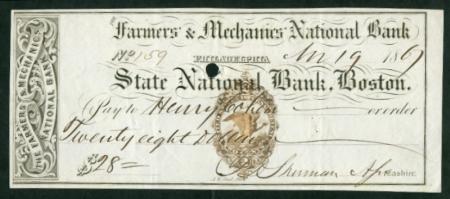 Farmers' & Mechanics' National Bank
No. 159 PHILADELPHIA, 19 1867
State National Bank, Boston.
Pay to Henry or order
Twenty eight Dollars
$28 =
Sherman Cashier.
FARMERS & MECHANICS
NATIONAL BANK